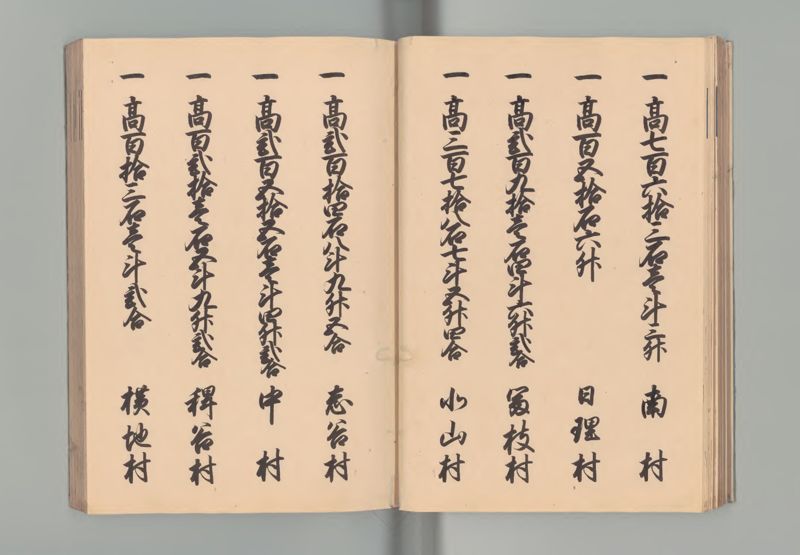 一 高七百六拾二石壱斗二升 南村
一 高百五拾石六升 日理村
一 高弐百九拾壱石四斗六升弐合 冨枝村
一 高三百七拾八石七斗五升四合 小山村
一 高弐百拾四石八斗九升五合 志谷村
一 高弐百五拾五石壱斗四升弐合 中村
一 高百弐拾壱石五斗九升弐合 稗谷村
一 高百拾三石壱斗弐合 横地村